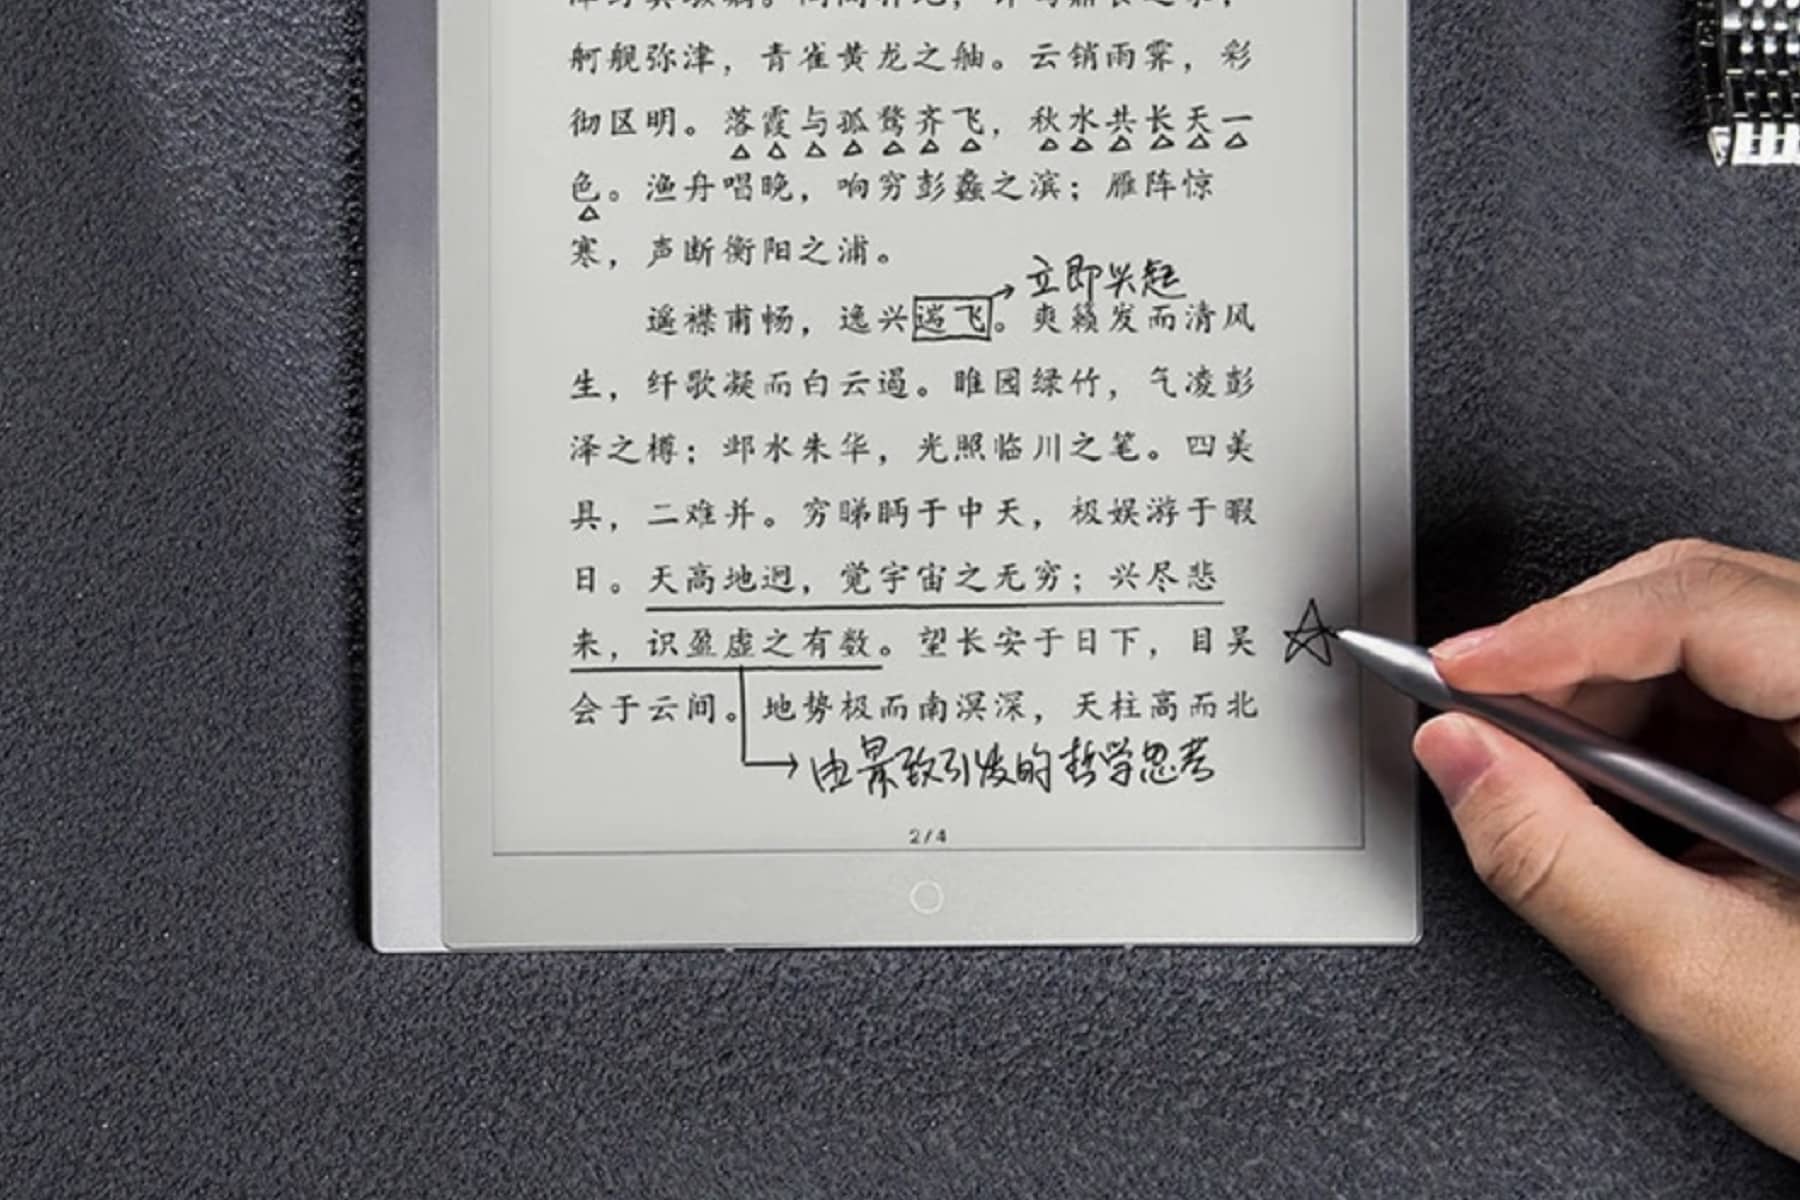 舸舰弥津，青雀黄龙之舳。云销雨霁，彩
彻区明。落霞与孤鹜齐飞，秋水共长天一
色。渔舟唱晚，响穷彭蠡之滨；雁阵惊
寒，声断衡阳之浦。
立即兴起
遥襟甫畅，逸兴遄飞。爽籁发而清风
生，纤歌凝而白云遏。睢园绿竹，气凌彭
泽之樽；邺水朱华，光照临川之笔。四美
具，二难并。穷睇眄于中天，极娱游于暇
日。天高地迥，觉宇宙之无穷；兴尽悲
来，识盈虚之有数。望长安于日下，目吴
会于云间。地势极而南溟深，天柱高而北
由景致引发的哲学思考
2/4